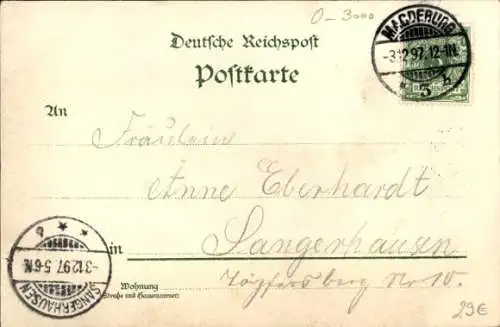 O-3000
MAGDEBURG
-3.12.97.12-1N.
* 3 h
Deutsche Reichspost
Postkarte
An
Fräulein
Anne Eberhardt
in Sangerhausen
Wohnung
(Straße und Hausnummer)
Töpfersberg Nr 10.
* *
-3.12.97.5-6N.
SANGERHAUSEN
29€